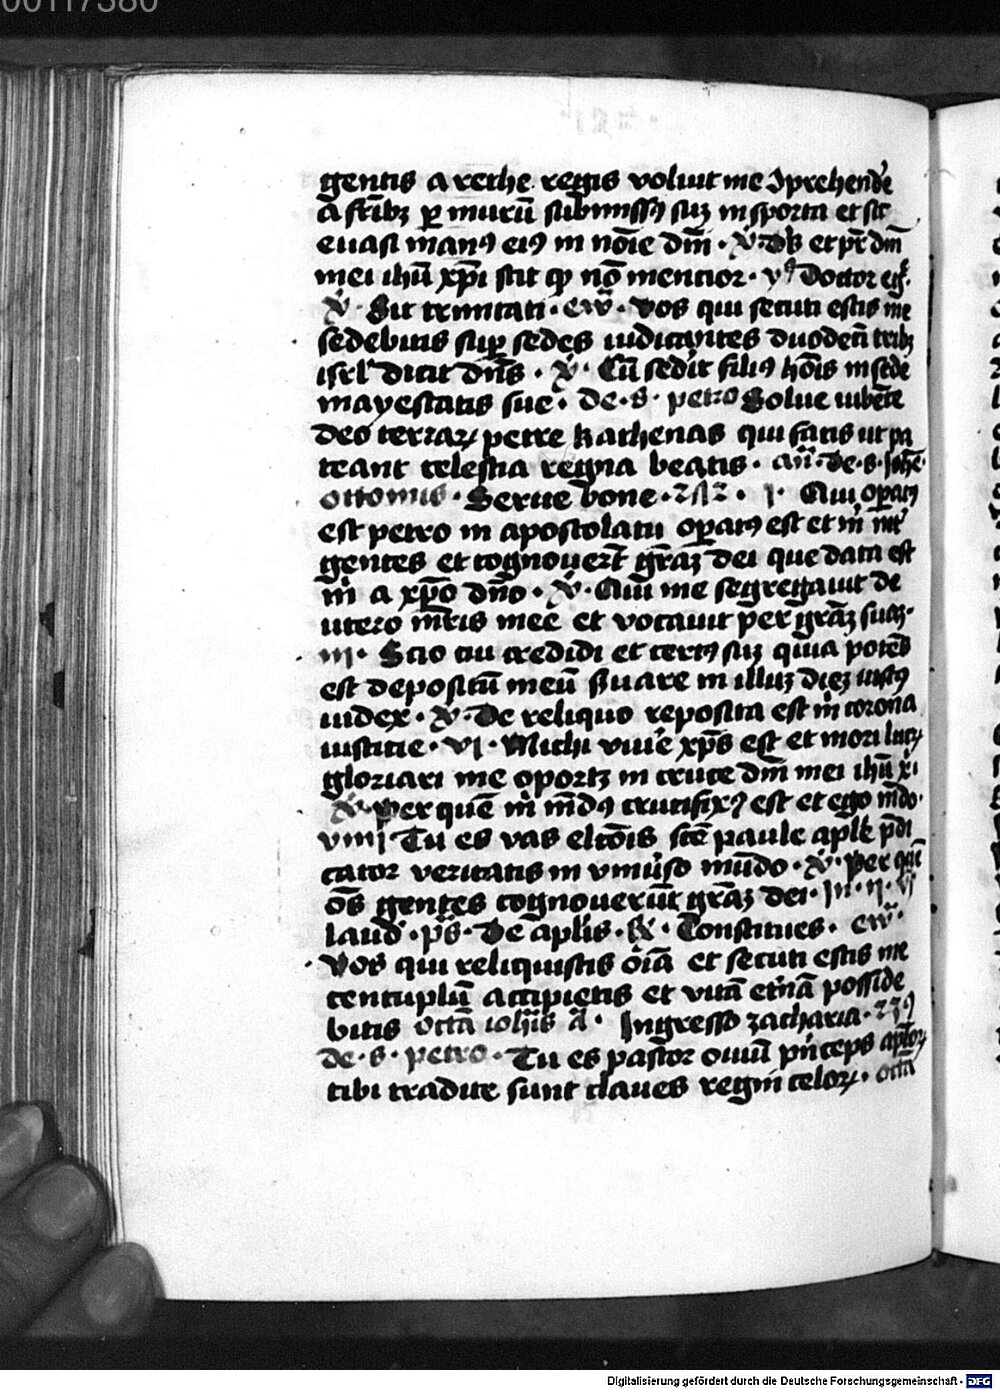 00117380
gentis arethe regis voluit me Ꝯprehendẽ
a fr̃ibꝫ ꝑ murũ submissꝰ suꝫ in sporta et sic
euasi manꝰ eiꝰ in noĩe dm̃ · V̾ · Dẽs et pr̃ dm̃
mei ihũ xp̃i scit ꝙ nõ mencior · yꝰ Doctor eg̃
V̾ · Sit trinitati · ew̃ · Vos qui secuti estis me
sedebitis suꝑ sedes iudicantes duodeci tribꝫ
isrl̃ dicit dñs · V̾ · Cũ sedit filiꝰ hõis in sede
mayestatis sue · de · s · petro Solue iubẽte
deo terraꝝ petre kathenas qui facis ut pa
teant celestia regna beatis · añ · de · s · Johẽ
ottomis · Serue bone · j · Qui oꝑatꝰ
est petro in apostolatu oꝑatꝰ est et m̃ int̾
gentes et cognouer̃t gr̃aꝫ dei que data est
m̃ a xp̃o dño · V̾ · Qui me segregauit de
utero mr̃is mee et vocauit per gr̃aꝫ suaꝫ ·
iij · Scio cui credidi et certꝰ suꝫ quia potẽs
est depositũ meũ s̾uare in illuꝫ dieꝫ iustꝰ
iudex · V̾ · De reliquo reposita est m̃ corona
iusticie · vj · Michi viue̾ xp̃s est et mori lucꝝ
gloriari me oportꝫ in cruce dm̃ mei ihũ xi
V̾ · Per quẽ m̃ mũdꝰ crucifixꝰ est et ego mũdo ·
viiij Tu es vas elcõis scẽ paule apl̃e p̃di
cator veritatis in vniu̾so mũdo · V̾ · Per quẽ
oẽs gentes cognouerũt gr̃aꝫ dei · In · ij · v̾
laud̾ · ps̃ · De apl̃is · R̾ · Constitues · ew̃ ·
Vos qui reliquistis oĩa et secuti estis me
centuplũ accipietis et vitã et̾nã posside
bitis octã ioh̃is a̾ · Ingresso zacharia ·
de · s · petro · Tu es pastor ouiũ pñceps apl̃oꝝ
tibi tradite sunt claues regni celoꝝ · octã
Digitalisierung gefördert durch die Deutsche Forschungsgemeinschaft - DFG